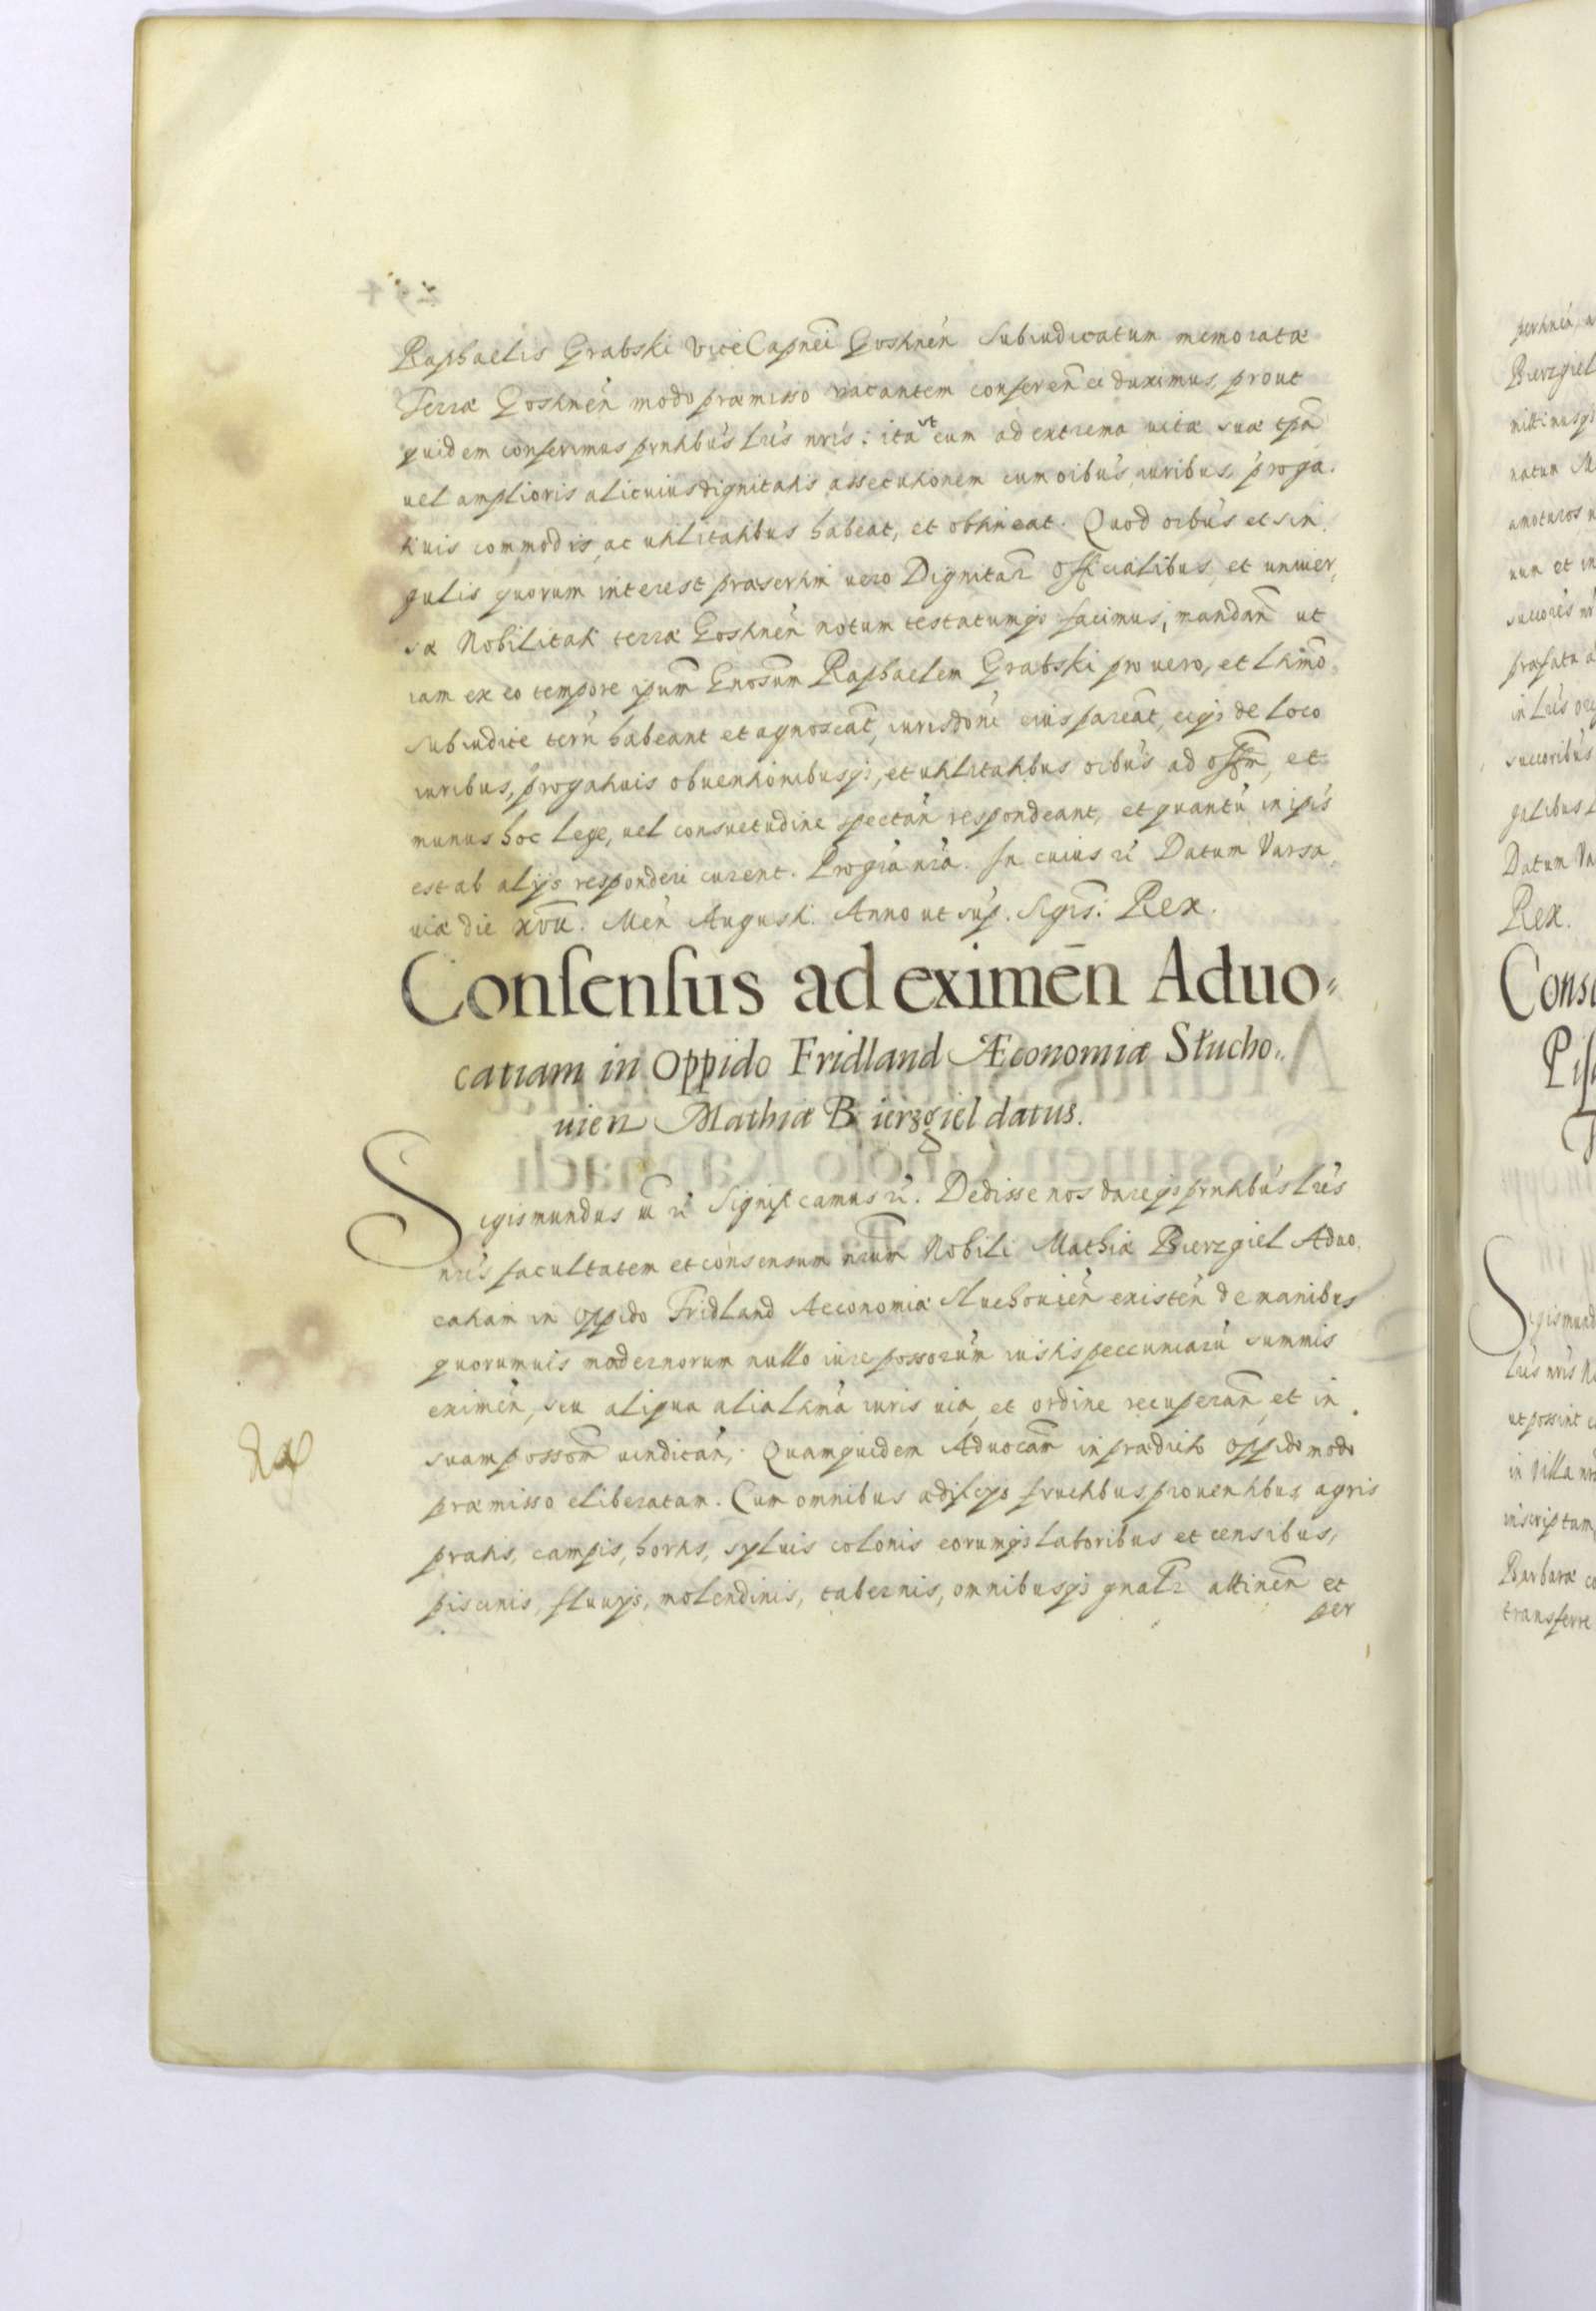 Raphaelis Grabski ViceCapnei Gostinen Subiudicatum memoratæ
Terræ Gostinen modo præmisso vacantem conferen ei duximus, prout
quidem conferimus prntibus Lris nris: ita ut eum ad extrema uitæ suæ tpa
uel amplioris alicuius dignitatis assecutionem cum oibus iuribus, proga-
tiuis commodis, ac utilitatibus habeat, et obtineat. Quod oibus et sin-
gulis quorum interest præsertim uero Dignitar Officialibus, et uniuer-
sæ Nobilitati terræ Gostinen notum testatumq facimus, mandan ut
iam ex eo tempore ipum Gnosum Raphaelem Grabski pro uero, et Ltimo
subiudice terrn habeant et agnoscat, iurisdoni eius pareat, eiq de loco
iuribus, progatiuis obuentionibusq, et utilitatibus oibus ad offm, et
munus hoc lege, uel consuetudine spectan respondeant, et quantu in ipis
est ab alijs responderi curent. Pro gra nra. In cuius rei Datum Varsa-
uiæ die xvii. Men Augusti. Anno ut sup. Sigis: Rex.
Consensus ad eximen Aduo=
catiam in Oppido Fridland Æconomiæ Słucho=
uien Mathiæ Bierzgiel datus.
Sigismundus iii rc Significamus rc. Dedisse nos dareq prntibus Lris
nris facultatem et consensum nrum Nobili Mathiæ Bierzgiel Aduo-
catiam in oppido Fridland Aeconomiæ Sluchouien existen de manibus
quorumuis modernorum nullo iure possorum iustis peccuniaru summis
eximen, seu aliqua alia Ltima iuris uia et ordine recuperan et in
suam possom uindican, Quamquidem Aduocam in prædicto oppido modo
præmisso eliberatam. Cum omnibus ædificijs fructibus, prouentibus agris
pratis, campis, hortis, syluis colonis eorumq laboribus et censibus,
piscinis, fluuijs, molendinis, tabernis, omnibusq gnalr attinen et
per